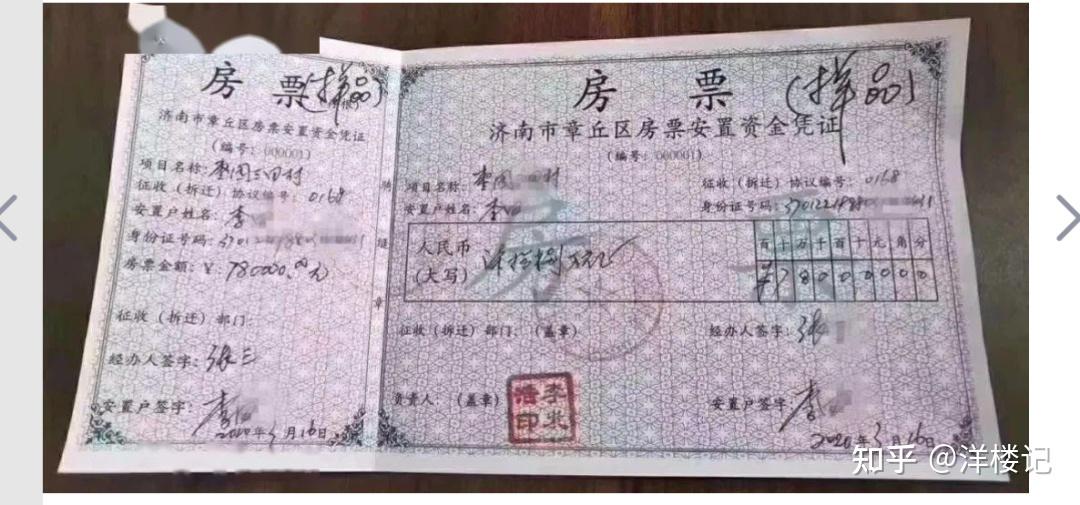 房 票(样品)
济南市章丘区房票安置资金凭证
(编号: 000001)
项目名称:
征收(拆迁)协议编号: 0168
安置户姓名: 李
身份证号码:
房票金额: ¥: 780000.00元
征收(拆迁)部门:
经办人签字: 张三
安置户签字: 李
2020年5月16日
房 票 (样品)
济南市章丘区房票安置资金凭证
(编号: 000001)
项目名称: 村
征收(拆迁)协议编号: 0168
安置户姓名: 李
身份证号码:
人民币
(大写) 柒拾捌万元
百十万千百十元角分
¥78000000
征收(拆迁)部门: (盖章)
经办人签字: 张
负责人: (盖章)
安置户签字: 李
2020年5月16日
知乎 @洋楼记